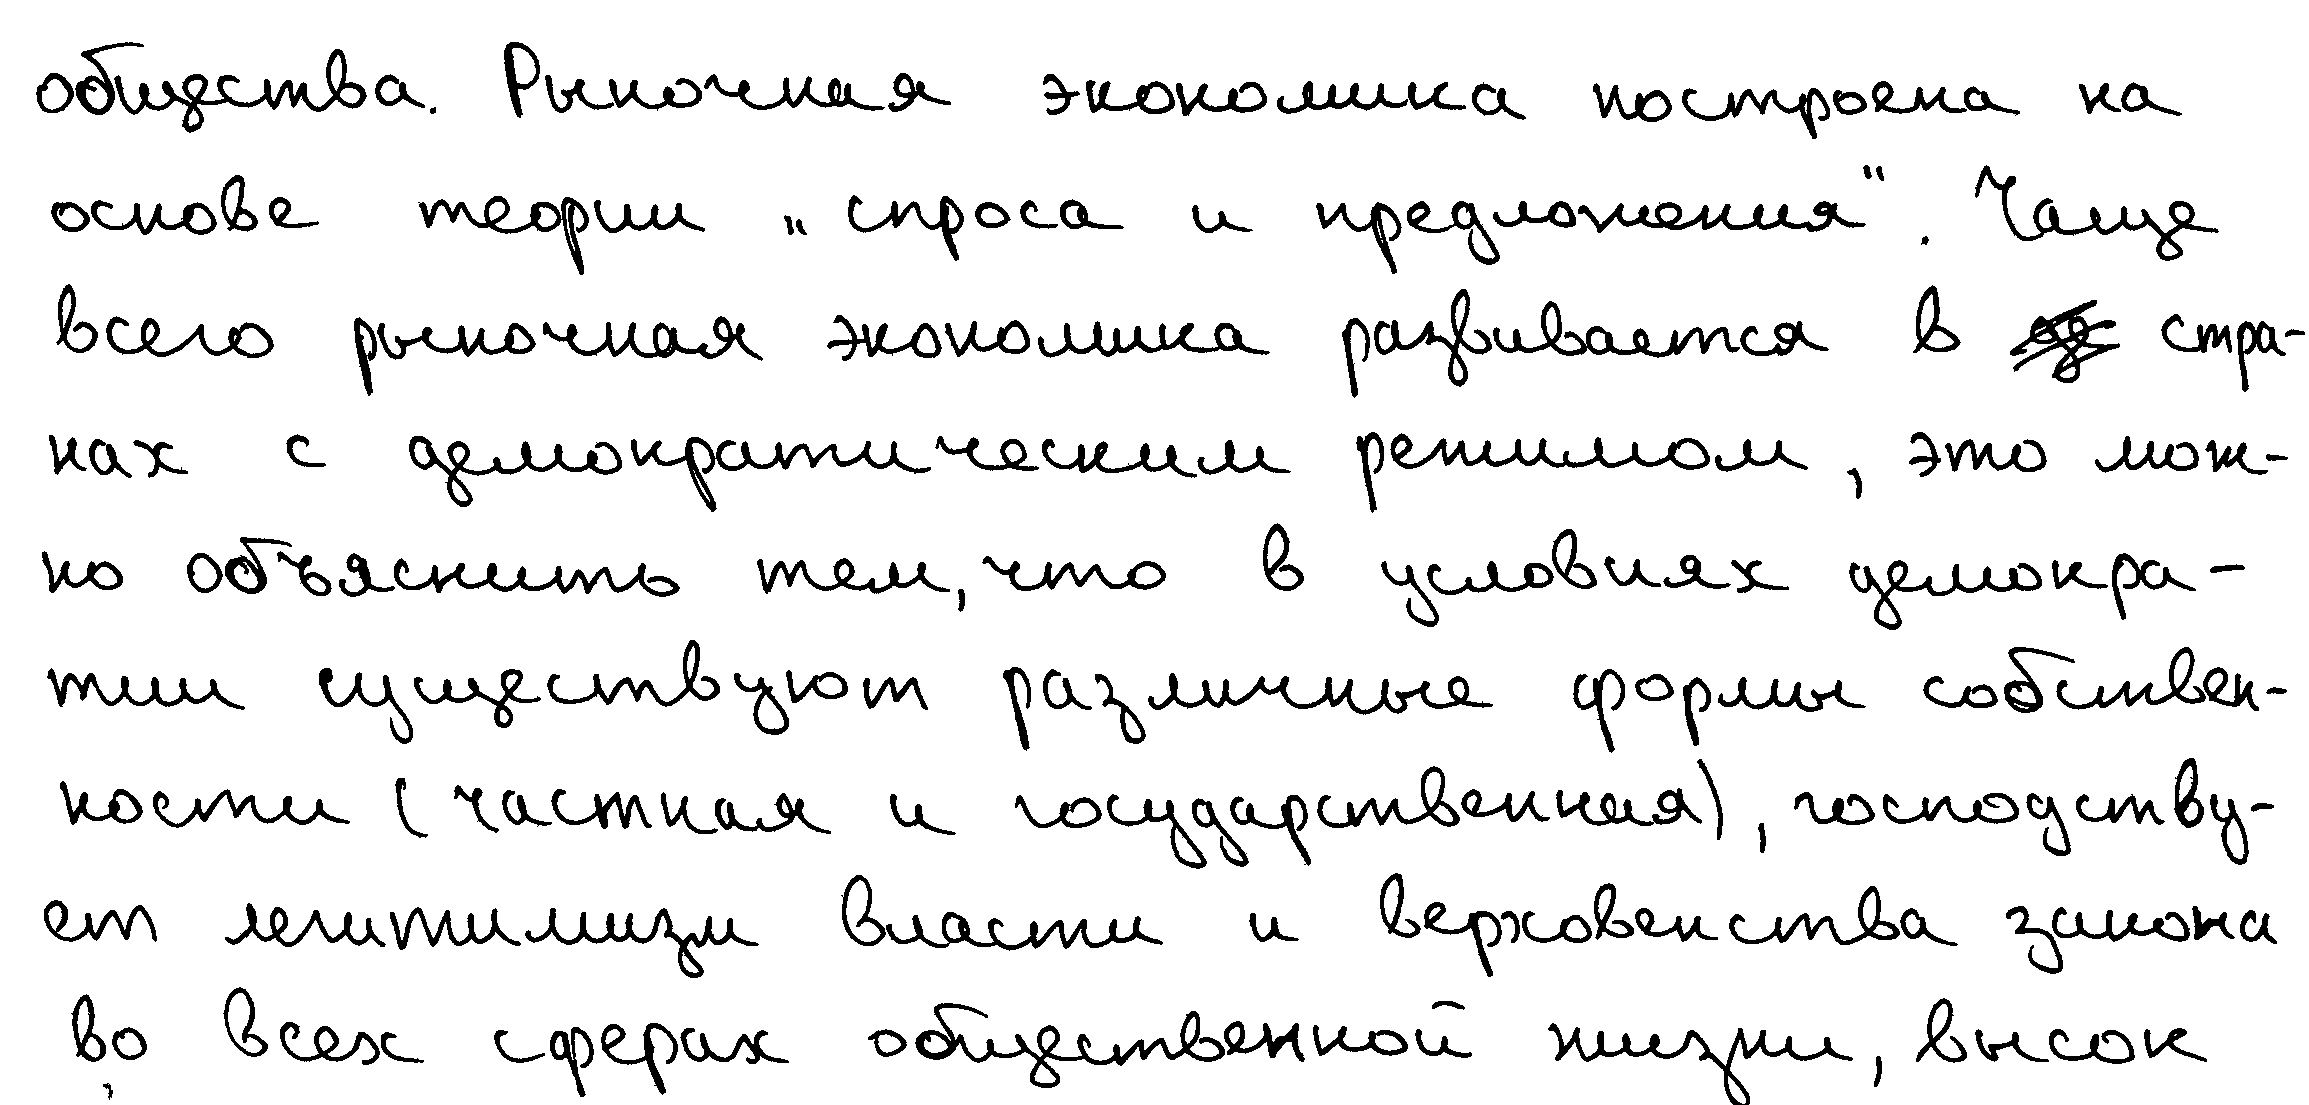 общества. Рыночная экономика построена на
основе теории „спроса и предложения“. Чаще
всего рыночная экономика развивается в стра-
нах с демократическим режимом, это мож-
но объяснить тем, что в условиях демокра-
тии существуют различные формы собствен-
ности (частная и государственная), господству-
ет легитимизм власти и верховенства закона
во всех сферах общественной жизни, высок